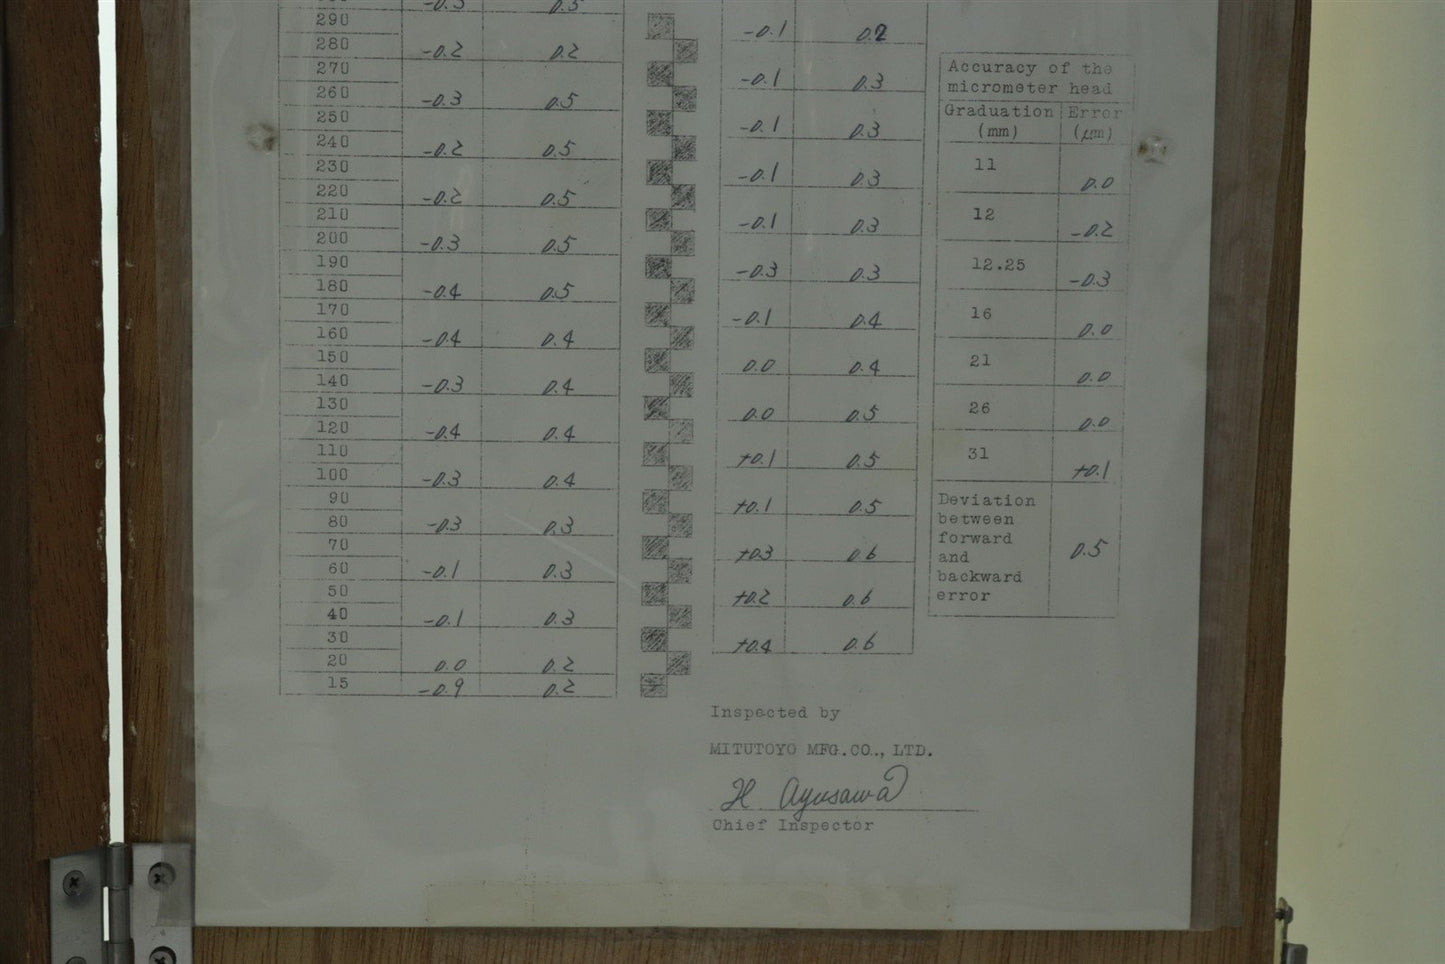 -0.3 0.5
290
280 -0.2 0.2
270
260 -0.3 0.5
250
240 -0.2 0.5
230
220 -0.2 0.5
210
200 -0.3 0.5
190
180 -0.4 0.5
170
160 -0.4 0.4
150
140 -0.3 0.4
130
120 -0.4 0.4
110
100 -0.3 0.4
90
80 -0.3 0.3
70
60 -0.1 0.3
50
40 -0.1 0.3
30
20 0.0 0.2
15 -0.9 0.2
-0.1 0.2
-0.1 0.3
-0.1 0.3
-0.1 0.3
-0.1 0.3
-0.3 0.3
-0.1 0.4
0.0 0.4
0.0 0.5
+0.1 0.5
+0.1 0.5
+0.3 0.6
+0.2 0.6
+0.4 0.6
Accuracy of the
micrometer head
Graduation Error
(mm) (μm)
11 0.0
12 -0.2
12.25 -0.3
16 0.0
21 0.0
26 0.0
31 +0.1
Deviation
between
forward
and
backward
error
0.5
Inspected by
MITUTOYO MFG.CO., LTD.
H Ayusawa
Chief Inspector